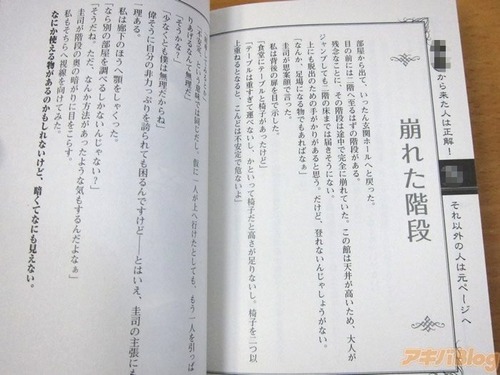 から来た人は正解！
それ以外の人は元ページへ
崩れた階段
部屋から出て、いったん玄関ホールへと戻った。
目の前には二階へ至るはずの階段がある。
残念なことに、その階段は途中で完全に崩れていた。この館は天井が高いため、大人が
ジャンプしても二階の床までは届きそうにない。
「なんか、足場になる物でもあればなぁ」
上にも脱出のための手がかりがあると思う。だけど、登れないんじゃしょうがない。
圭司が思案顔で言った。
私は背後の扉を目で示した。
「食堂にテーブルと椅子があったけど」
「テーブルは重すぎて運べないし、かといって椅子だと高さが足りないし。椅子を二つ以
上重ねるとなると、こんどは不安定で危ないよ」
りあげるなんて無理だ」
「そうかな？」
「少なくとも僕は無理だからね」
偉そうに自分の非力っぷりを誇られても困るんですけど――とはいえ、圭司の主張にも
一理ある。
私は廊下のほうへ顎をしゃくった。
「なら別の部屋を調べるしかないんじゃない？」
「そうだね。ただ、なんか方法があったような気もするんだよなぁ」
圭司が階段の奥の暗がりに目をこらす。
私もそちらへ視線を向けてみた。
なにか使える物があるのかもしれないけど、暗くてなにも見えない。
アキバBlog